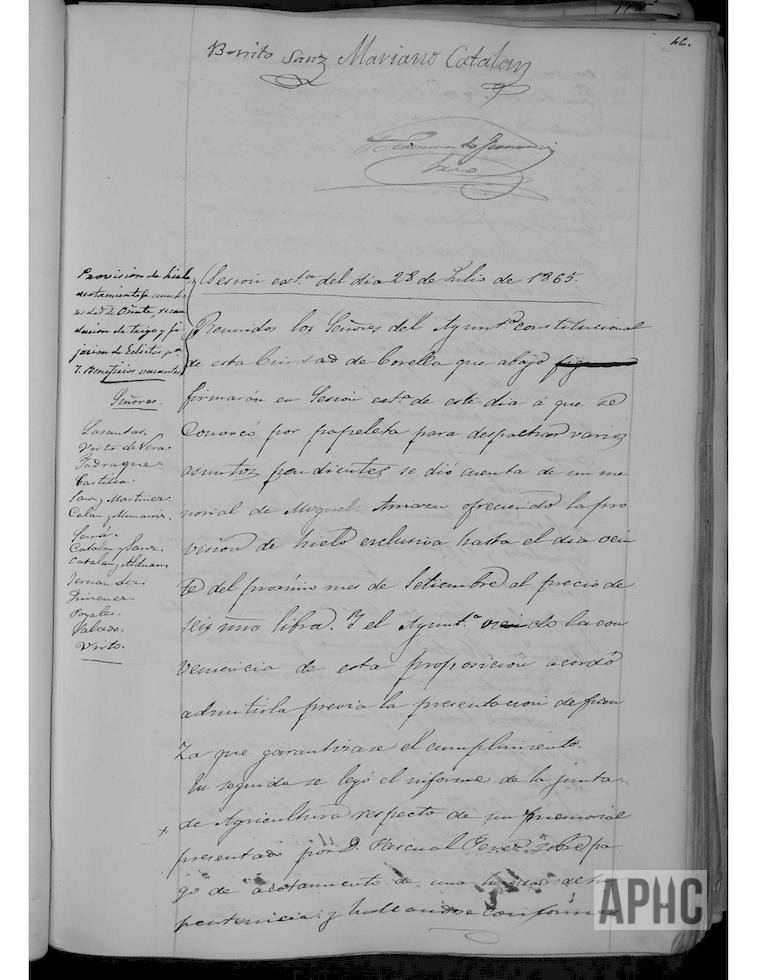 46.
Benito Sanz Mariano Catalan
Provision de hielo
acotamiento
de Oñate,
dacion de trigo y fi
jacion de Edictos pª
7. Beneficios vacantes
Sesion extª del dia 28 de Julio de 1865.
Reunidos los Señores del Ayuntº constitucional
de esta Ciudad de Corella que abajo
firmarán en Sesion extª de este dia á que se
convocó por papeleta para despachar varios
asuntos pendientes se dió cuenta de un me
morial de Miguel ofreciendo la pro
vision de hielo exclusiva hasta el dia vein
te del proximo mes de Setiembre al precio de
seis mrs libra. Y el Ayuntº viendo la con
veniencia de esta proposicion acordó
admitirla previa la presentacion de fian
za que garantizase el cumplimiento.
En seguida se leyó el informe de la junta
de Agricultura respecto de un memorial
presentado por D. Pascual Perez sobre pa
go de acotamiento de una de su
pertenencia y hallandose conforme
Señores.
Virto de Vera
Jadraque
Castilla.
Sanz y Martinez
Catalan y
Serná.
Catalan y Sanz.
Catalan y Alduan.
Fernandez.
Jimenez
Poyales.
Salcedo.
Virto.
APHC